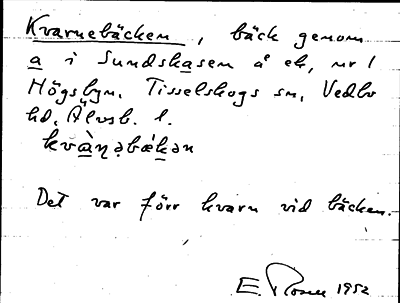 Kvarnebäcken, bäck genom
a i Sundskasen å ek, nr 1
Högsbyn. Tisselskogs sn, Vedbo
hd, Älvsb. l.
kvàṇəbækən
Det var förr kvarn vid bäcken.
E. Rosen 1952